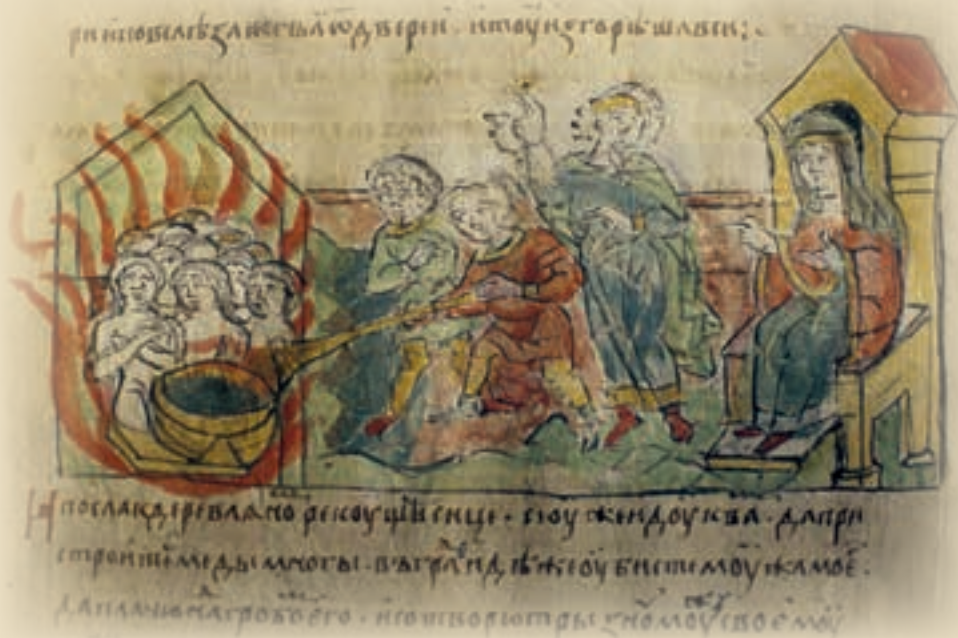 ри и повелѣ зажечьꙗ ѿ двери . и тоу изгорѣша вси :.
И посла к деревлѧно рекоущи сице . се оу же идоу к ва . да при
строите меды многы . въ гра иде же оубисте моужа мое :
да плачю на гробо его . и сотворю трызноу моу своемоу